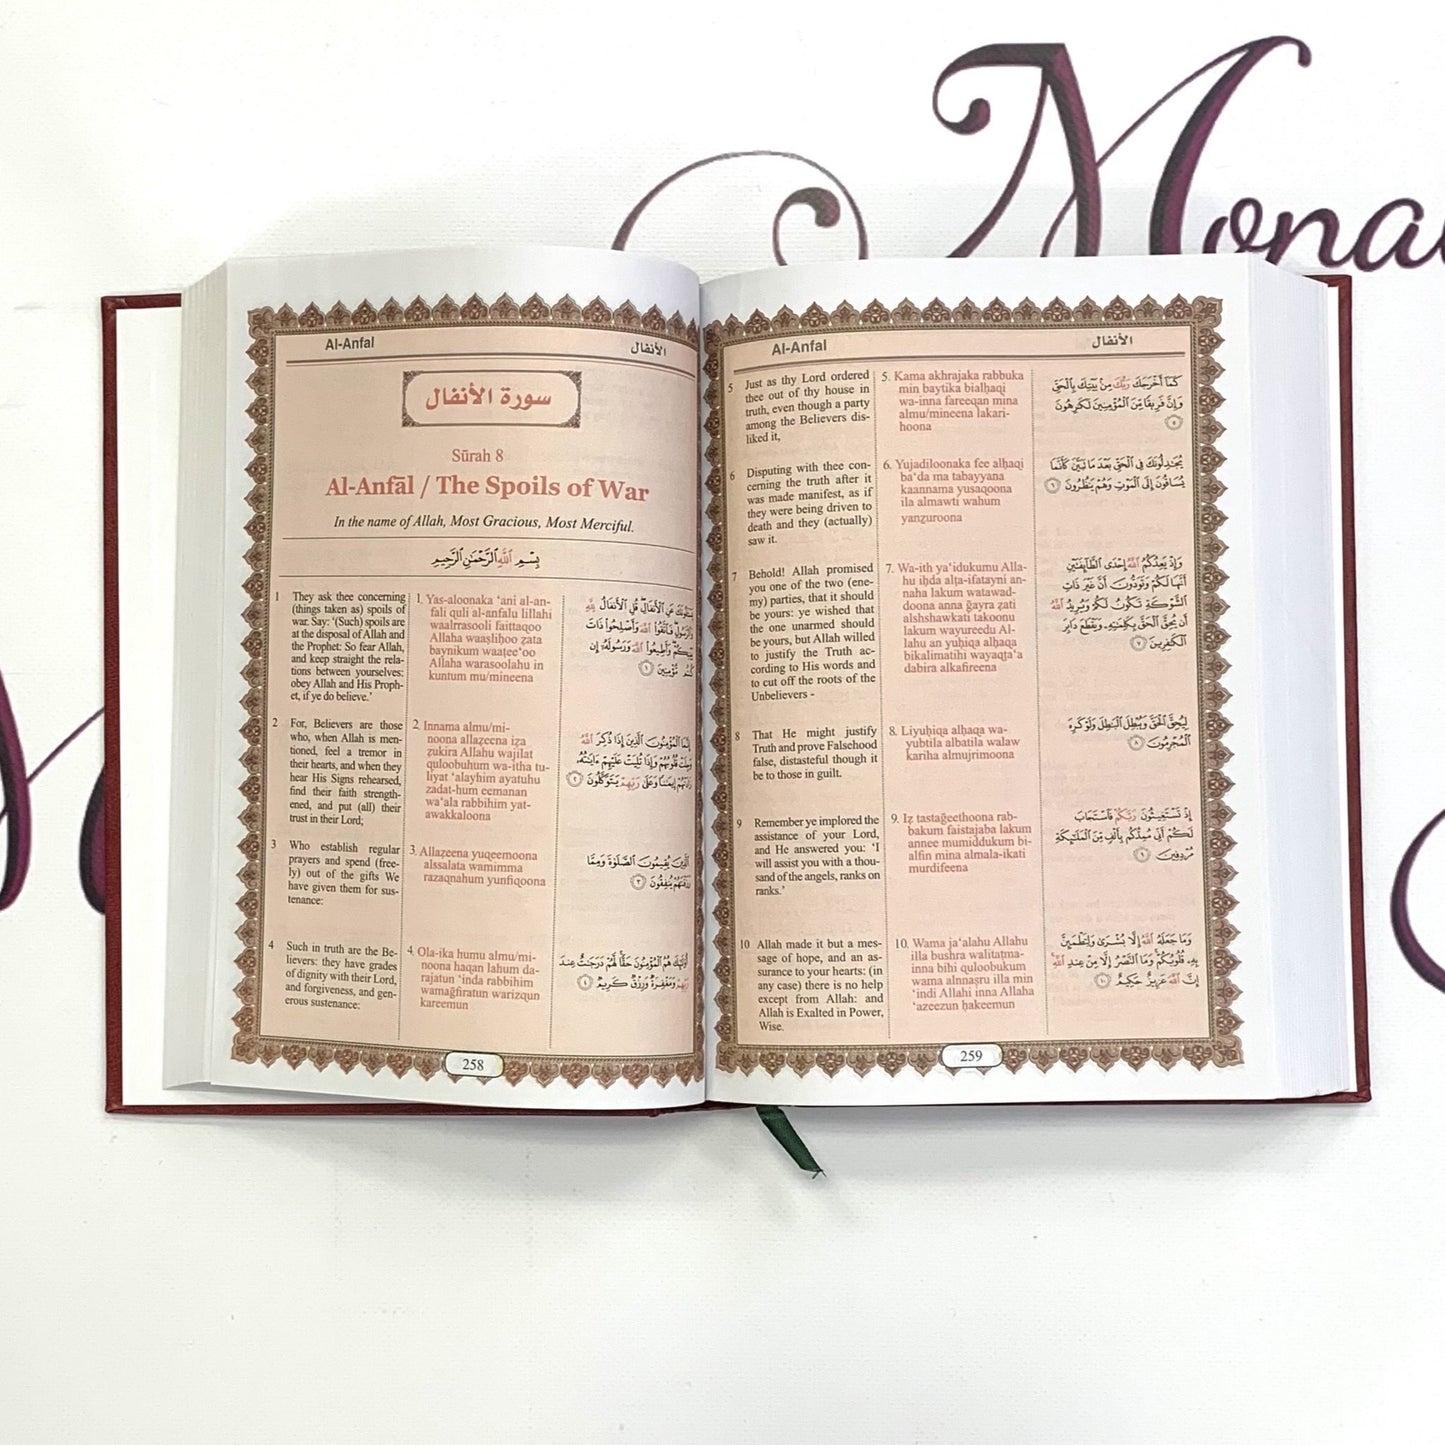 Monal
Al-Anfal
الأنفال
سورة الأنفال
Sūrah 8
Al-Anfāl / The Spoils of War
In the name of Allah, Most Gracious, Most Merciful.
بِسْمِ ٱللَّهِ ٱلرَّحْمَٰنِ ٱلرَّحِيمِ
1 They ask thee concerning
(things taken as) spoils of
war. Say: ‘(Such) spoils are
at the disposal of Allah and
the Prophet: So fear Allah,
and keep straight the rela-
tions between yourselves:
obey Allah and His Proph-
et, if ye do believe.’
1. Yas-aloonaka ‘ani al-an-
fali quli al-anfalu lillahi
waalrrasooli faittaqoo
Allaha waaṣliḥoo ẓata
baynikum waaṭee‘oo
Allaha warasoolahu in
kuntum mu/mineena
2 For, Believers are those
who, when Allah is men-
tioned, feel a tremor in
their hearts, and when they
hear His Signs rehearsed,
find their faith strength-
ened, and put (all) their
trust in their Lord;
2. Innama almu/mi-
noona allaẓeena iẓa
ẓukira Allahu wajilat
quloobuhum wa-itha tu-
liyat ‘alayhim ayatuhu
zadat-hum eemanan
wa‘ala rabbihim yat-
awakkaloona
3 Who establish regular
prayers and spend (free-
ly) out of the gifts We
have given them for sus-
tenance:
3. Allaẓeena yuqeemoona
alssalata wamimma
razaqnahum yunfiqoona
4 Such in truth are the Be-
lievers: they have grades
of dignity with their Lord,
and forgiveness, and gen-
erous sustenance:
4. Ola-ika humu almu/mi-
noona haqan lahum da-
rajatun ‘inda rabbihim
wamağfiratun warizqun
kareemun
258
Al-Anfal
الأنفال
5 Just as thy Lord ordered
thee out of thy house in
truth, even though a party
among the Believers dis-
liked it,
5. Kama akhrajaka rabbuka
min baytika bialḥaqi
wa-inna fareeqan mina
almu/mineena lakari-
hoona
كَمَآ أَخْرَجَكَ رَبُّكَ مِنۢ بَيْتِكَ بِٱلْحَقِّ
وَإِنَّ فَرِيقًا مِّنَ ٱلْمُؤْمِنِينَ لَكَٰرِهُونَ
٥
6 Disputing with thee con-
cerning the truth after it
was made manifest, as if
they were being driven to
death and they (actually)
saw it.
6. Yujadiloonaka fee alḥaqi
ba‘da ma tabayyana
kaannama yusaqoona
ila almawti wahum
yanẓuroona
يُجَٰدِلُونَكَ فِى ٱلْحَقِّ بَعْدَ مَا تَبَيَّنَ كَأَنَّمَا
يُسَاقُونَ إِلَى ٱلْمَوْتِ وَهُمْ يَنظُرُونَ ٦
7 Behold! Allah promised
you one of the two (ene-
my) parties, that it should
be yours: ye wished that
the one unarmed should
be yours, but Allah willed
to justify the Truth ac-
cording to His words and
to cut off the roots of the
Unbelievers -
7. Wa-ith ya‘idukumu Alla-
hu iḥda alṭa-ifatayni an-
naha lakum watawad-
doona anna ğayra ẓati
alshshawkati takoonu
lakum wayureedu Al-
lahu an yuḥiqa alḥaqa
bikalimatihi wayaqṭa‘a
dabira alkafireena
وَإِذْ يَعِدُكُمُ ٱللَّهُ إِحْدَى ٱلطَّآئِفَتَيْنِ
أَنَّهَا لَكُمْ وَتَوَدُّونَ أَنَّ غَيْرَ ذَاتِ
ٱلشَّوْكَةِ تَكُونُ لَكُمْ وَيُرِيدُ ٱللَّهُ
أَن يُحِقَّ ٱلْحَقَّ بِكَلِمَٰتِهِۦ وَيَقْطَعَ دَابِرَ
ٱلْكَٰفِرِينَ ٧
8 That He might justify
Truth and prove Falsehood
false, distasteful though it
be to those in guilt.
8. Liyuḥiqa alḥaqa wa-
yubtila albatila walaw
kariha almujrimoona
لِيُحِقَّ ٱلْحَقَّ وَيُبْطِلَ ٱلْبَٰطِلَ وَلَوْ كَرِهَ
ٱلْمُجْرِمُونَ ٨
9 Remember ye implored the
assistance of your Lord,
and He answered you: ‘I
will assist you with a thou-
sand of the angels, ranks on
ranks.’
9. Iẓ tastağeethoona rab-
bakum faistajaba lakum
annee mumiddukum bi-
alfin mina almala-ikati
murdifeena
إِذْ تَسْتَغِيثُونَ رَبَّكُمْ فَٱسْتَجَابَ
لَكُمْ أَنِّى مُمِدُّكُم بِأَلْفٍ مِّنَ ٱلْمَلَٰٓئِكَةِ
مُرْدِفِينَ ٩
10 Allah made it but a mes-
sage of hope, and an as-
surance to your hearts: (in
any case) there is no help
except from Allah: and
Allah is Exalted in Power,
Wise.
10. Wama ja‘alahu Allahu
illa bushra walitaṭma-
inna bihi quloobukum
wama alnnaṣru illa min
‘indi Allahi inna Allaha
‘azeezun ḥakeemun
وَمَا جَعَلَهُ ٱللَّهُ إِلَّا بُشْرَىٰ وَلِتَطْمَئِنَّ
بِهِۦ قُلُوبُكُمْ وَمَا ٱلنَّصْرُ إِلَّا مِنْ عِندِ ٱللَّهِ
إِنَّ ٱللَّهَ عَزِيزٌ حَكِيمٌ ١٠
259